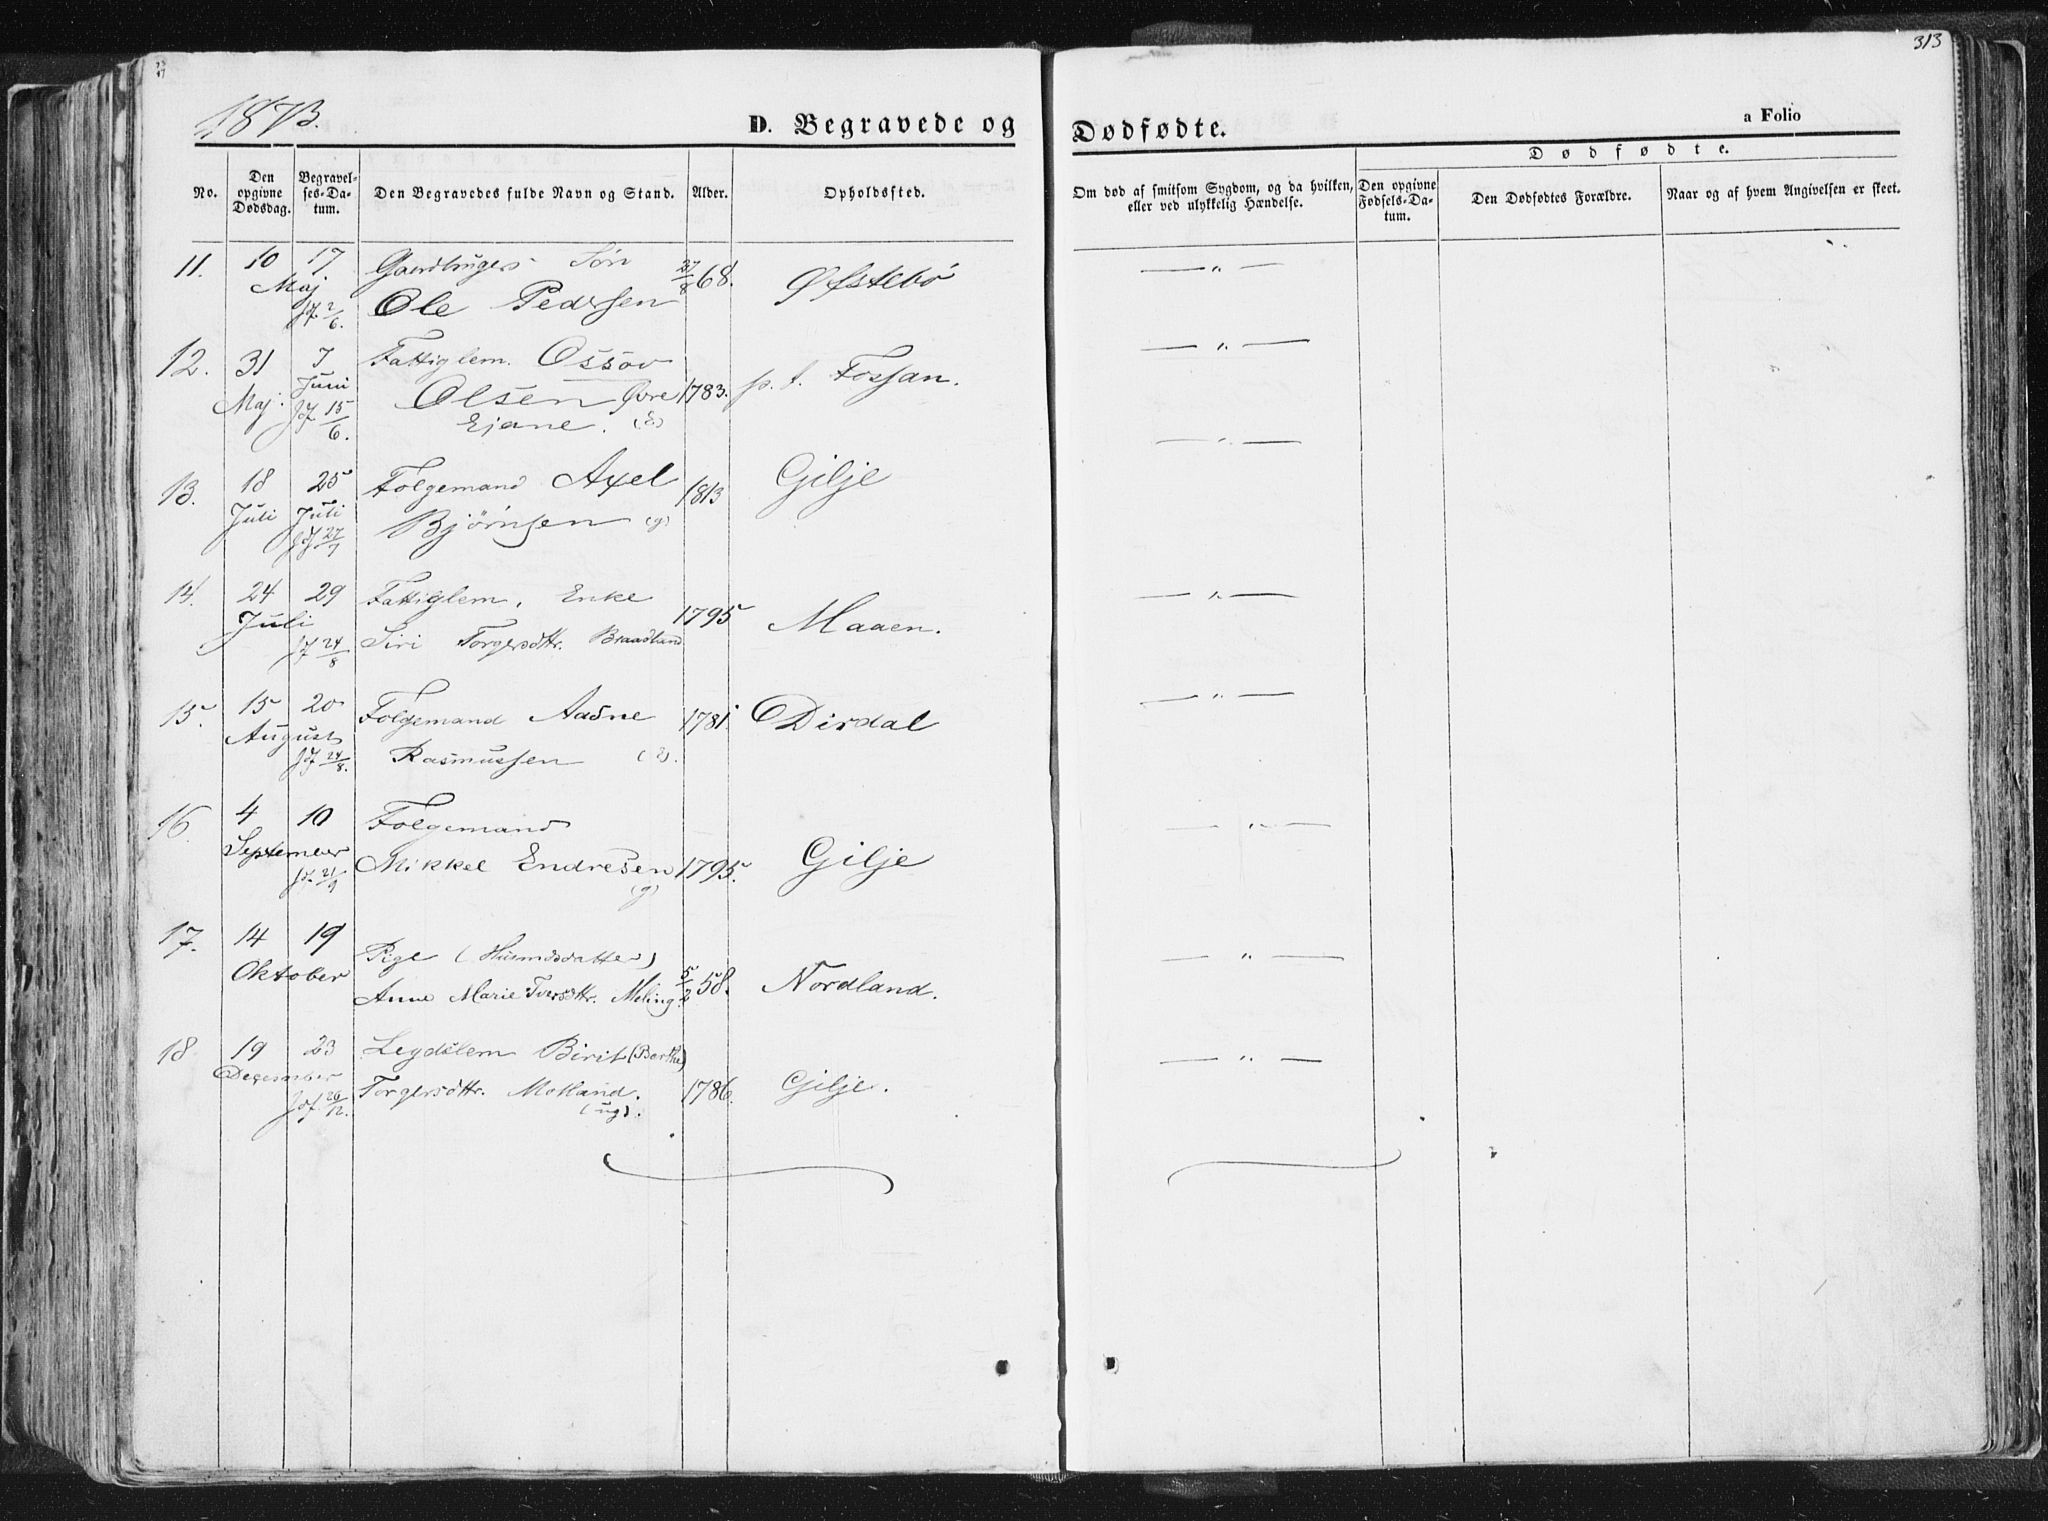 313
1873.
D. Begravede og Dødfødte.
a Folio
No.
Den opgivne Dødsdag.
Begravelses-Datum.
Den Begravedes fulde Navn og Stand.
Alder.
Opholdssted.
Om død af smitsom Sygdom, og da hvilken, eller ved ulykkelig Hændelse.
Dødfødte.
Den opgivne Fødsels-Datum.
Den Dødfødtes Forældre.
Naar og af hvem Angivelsen er skeet.
11. 10 17 Gaardbrugers Søn 27/8 68. Øfstebø — " —
Maj
Jf. 2/6. Ole Pedersen
12. 31 7 Fattiglem. Ossov — " —
Maj. Juni Olsen Øvre 1783. p. t. Fossan.
Jf 15/6. Ejane. (E)
13. 18 25 Følgemand Axel 1813 Gilje — " —
Juli Juli Bjørnsen (g)
Jf 27/7
14. 24 29 Fattiglem, Enke 1795 Maaen. — " —
Juli
Jf 24/8 Siri Torgersdttr. Braadland
15. 15 20 Følgemand Aadne 1781. Dirdal — " —
August
Jf 24/8. Rasmussen (E).
16. 4 10 Følgemand — " —
September Mikkel Endresen 1795. Gilje
Jf. 21/9 (g)
17. 14 19 Pige (Husmdsdatter) — " —
Oktober Anne Marie Iversdttr. Meling 5/2 58. Nordland.
18. 19 23 Legdslem Birit (Berthe) — " —
December Torgersdttr. Motland. 1786. Gilje.
Jf. 26/12. (ug).